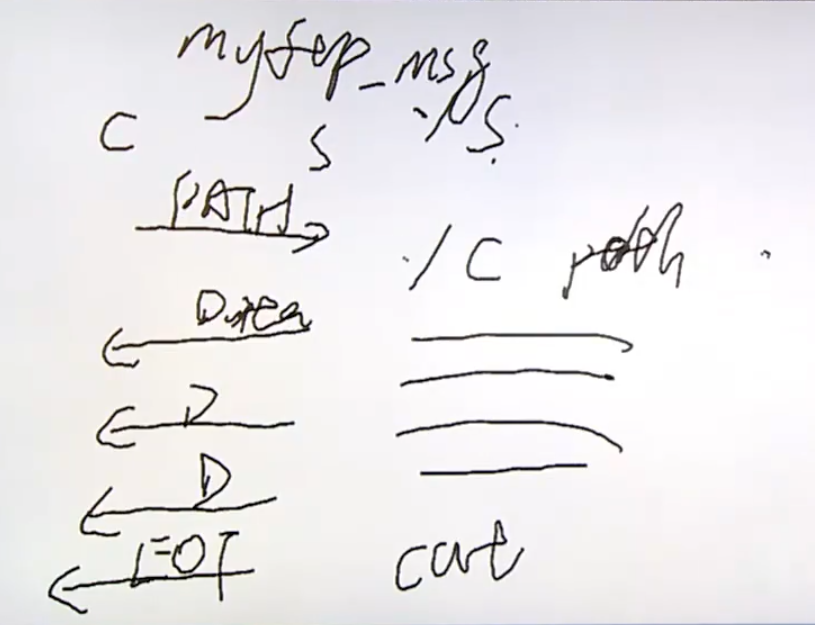 myftp_msg
C S ./S
PATH
./C path
Data
D
D
EOT cat